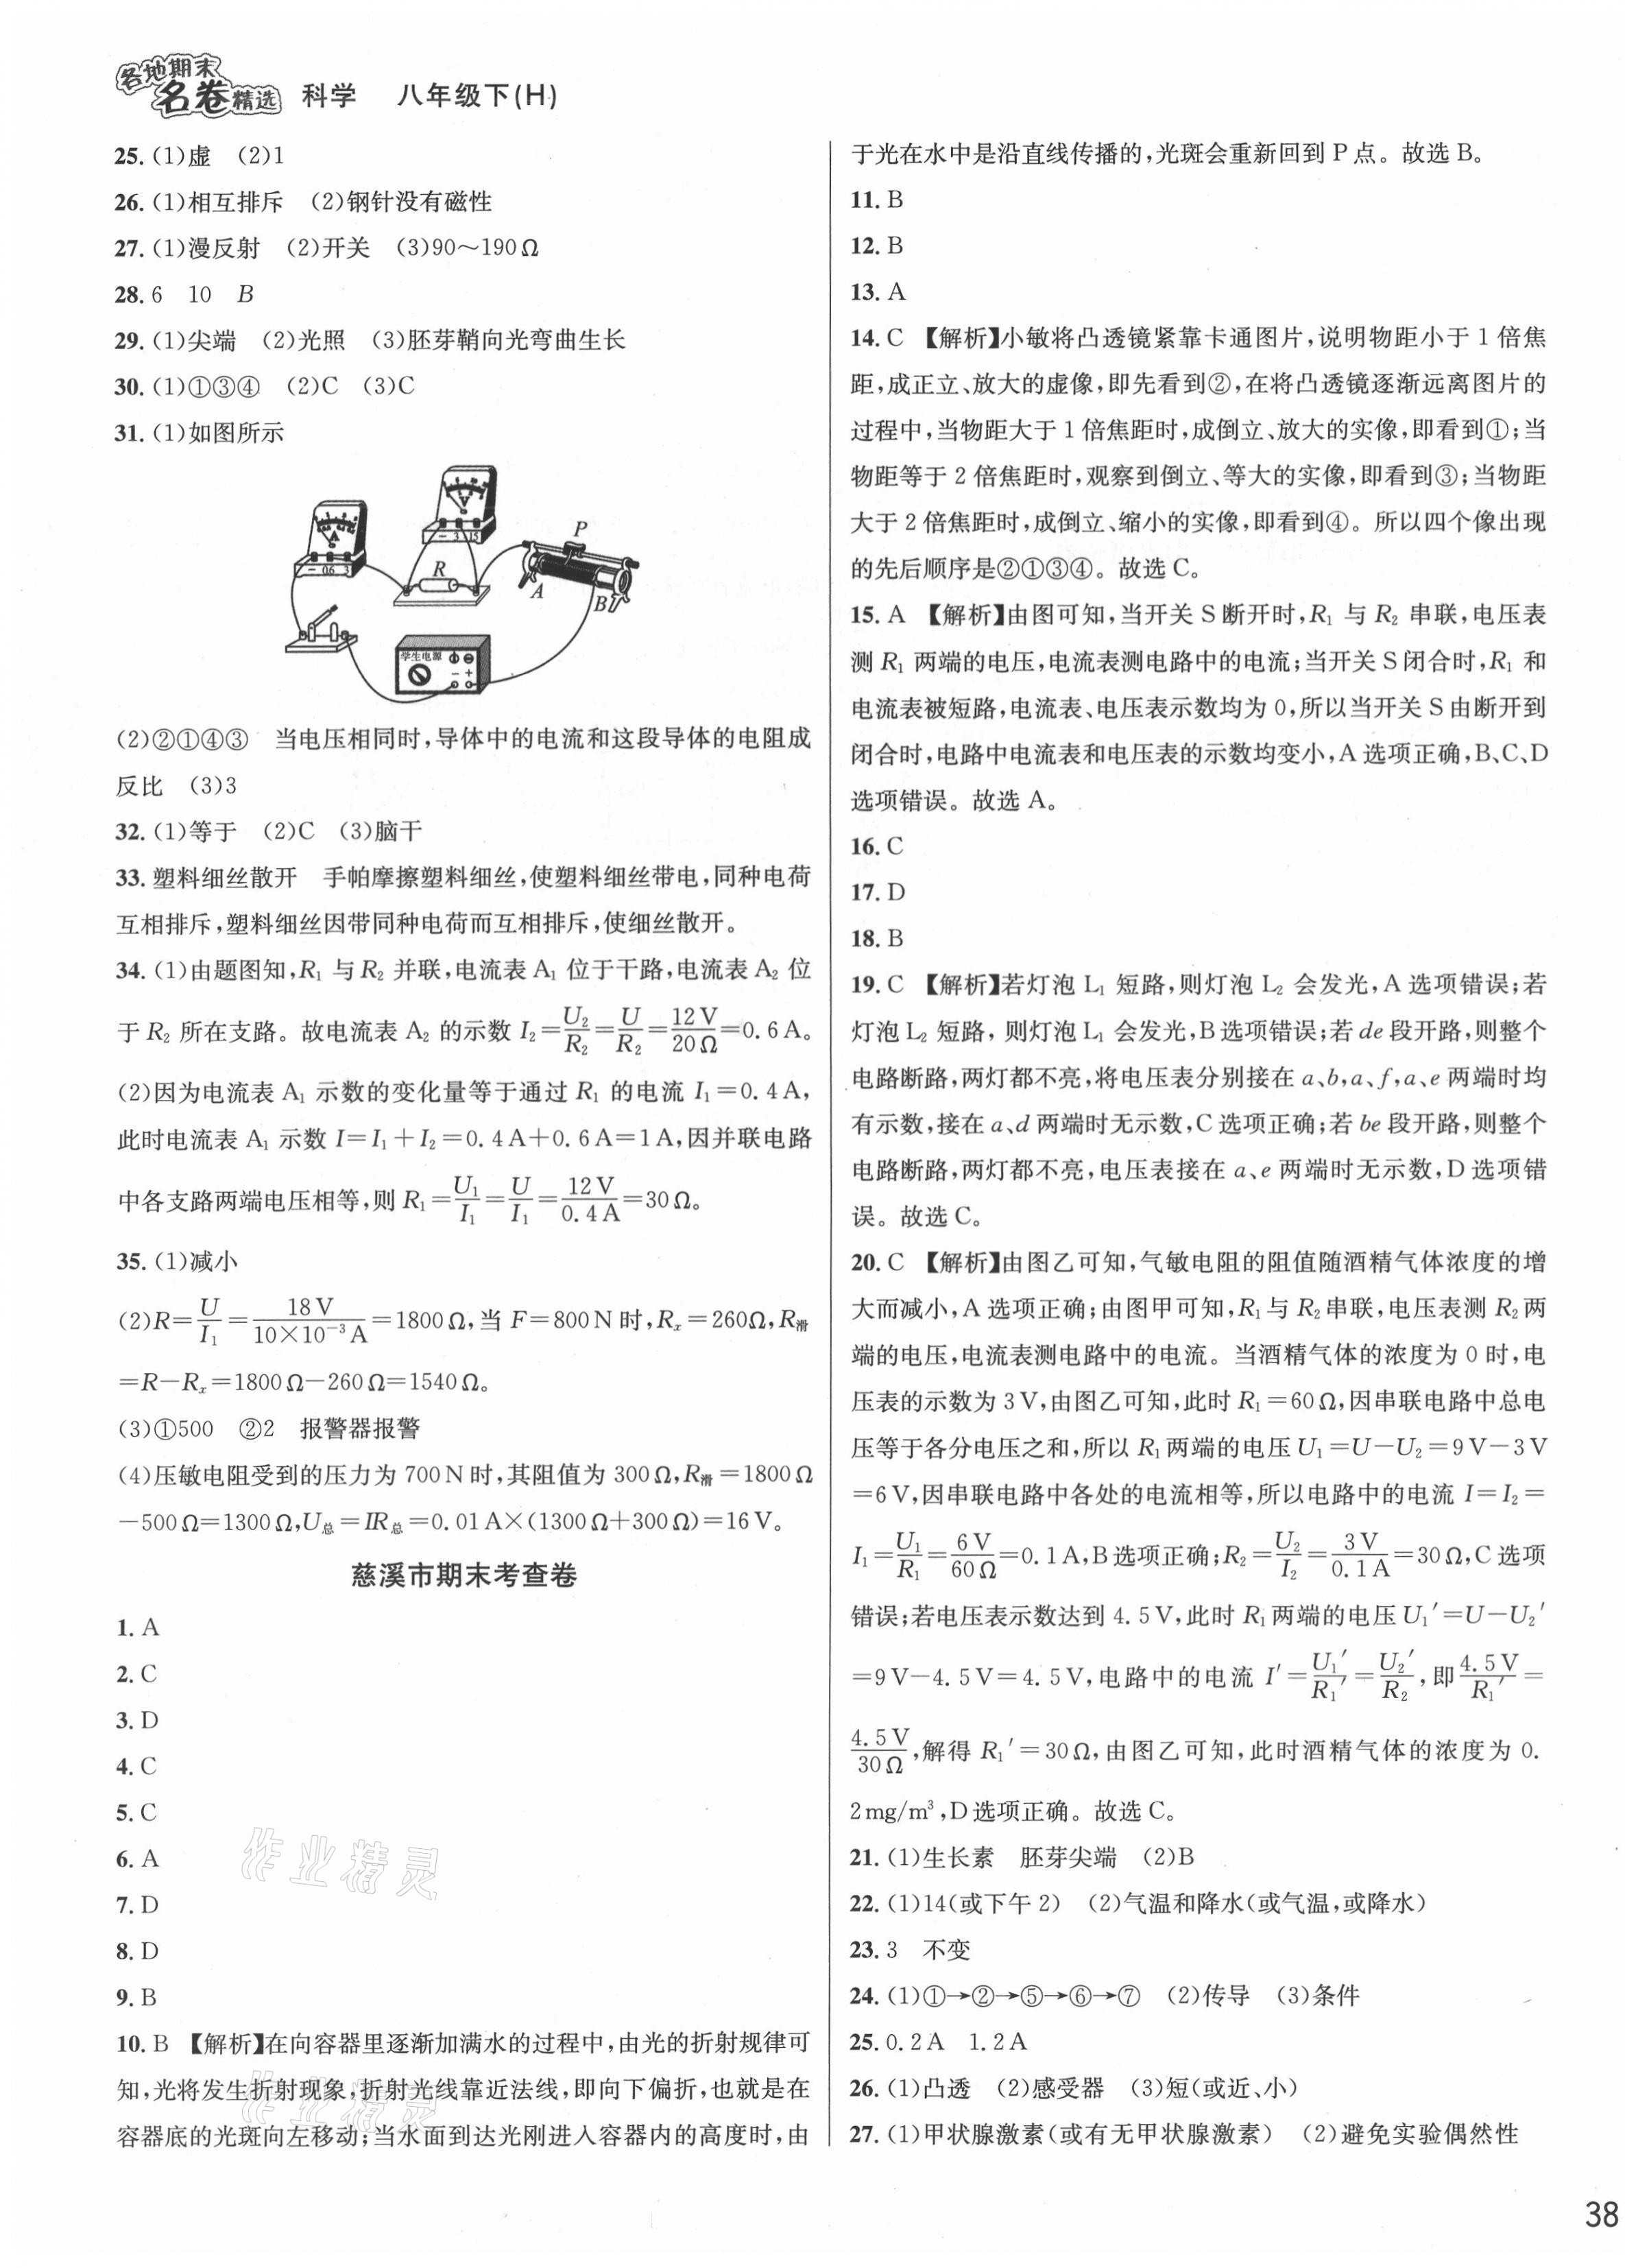 各地期末
名卷精选 科学 八年级下(H)
25. (1)虚 (2)1
26. (1)相互排斥 (2)钢针没有磁性
27. (1)漫反射 (2)开关 (3)90～190Ω
28. 6 10 B
29. (1)尖端 (2)光照 (3)胚芽鞘向光弯曲生长
30. (1)①③④ (2)C (3)C
31. (1)如图所示
V
- 3 15
A
- 06 3
R
P
A
B
学生电源
- +
(2)②①④③ 当电压相同时,导体中的电流和这段导体的电阻成
反比 (3)3
32. (1)等于 (2)C (3)脑干
33. 塑料细丝散开 手帕摩擦塑料细丝,使塑料细丝带电,同种电荷
互相排斥,塑料细丝因带同种电荷而互相排斥,使细丝散开。
34. (1)由题图知,R₁ 与 R₂ 并联,电流表 A₁ 位于干路,电流表 A₂ 位
于 R₂ 所在支路。故电流表 A₂ 的示数 I₂=U₂/R₂=U/R₂=12V/20Ω=0.6A。
(2)因为电流表 A₁ 示数的变化量等于通过 R₁ 的电流 I₁=0.4A,
此时电流表 A₁ 示数 I=I₁+I₂=0.4A+0.6A=1A,因并联电路
中各支路两端电压相等,则 R₁=U₁/I₁=U/I₁=12V/0.4A=30Ω。
35. (1)减小
(2)R=U/I₁=18V/(10×10⁻³A)=1800Ω,当 F=800N 时,Rₓ=260Ω,R滑
=R-Rₓ=1800Ω-260Ω=1540Ω。
(3)①500 ②2 报警器报警
(4)压敏电阻受到的压力为 700N 时,其阻值为 300Ω,R滑=1800Ω
-500Ω=1300Ω,U总=IR总=0.01A×(1300Ω+300Ω)=16V。
慈溪市期末考查卷
1. A
2. C
3. D
4. C
5. C
6. A
7. D
8. D
9. B
10. B 【解析】在向容器里逐渐加满水的过程中,由光的折射规律可
知,光将发生折射现象,折射光线靠近法线,即向下偏折,也就是在
容器底的光斑向左移动;当水面到达光刚进入容器内的高度时,由
于光在水中是沿直线传播的,光斑会重新回到 P 点。故选 B。
11. B
12. B
13. A
14. C 【解析】小敏将凸透镜紧靠卡通图片,说明物距小于 1 倍焦
距,成正立、放大的虚像,即先看到②,在将凸透镜逐渐远离图片的
过程中,当物距大于 1 倍焦距时,成倒立、放大的实像,即看到①;当
物距等于 2 倍焦距时,观察到倒立、等大的实像,即看到③;当物距
大于 2 倍焦距时,成倒立、缩小的实像,即看到④。所以四个像出现
的先后顺序是②①③④。故选 C。
15. A 【解析】由图可知,当开关 S 断开时,R₁ 与 R₂ 串联,电压表
测 R₁ 两端的电压,电流表测电路中的电流;当开关 S 闭合时,R₁ 和
电流表被短路,电流表、电压表示数均为 0,所以当开关 S 由断开到
闭合时,电路中电流表和电压表的示数均变小,A 选项正确,B、C、D
选项错误。故选 A。
16. C
17. D
18. B
19. C 【解析】若灯泡 L₁ 短路,则灯泡 L₂ 会发光,A 选项错误;若
灯泡 L₂ 短路,则灯泡 L₁ 会发光,B 选项错误;若 de 段开路,则整个
电路断路,两灯都不亮,将电压表分别接在 a、b,a、f,a、e 两端时均
有示数,接在 a、d 两端时无示数,C 选项正确;若 be 段开路,则整个
电路断路,两灯都不亮,电压表接在 a、e 两端时无示数,D 选项错
误。故选 C。
20. C 【解析】由图乙可知,气敏电阻的阻值随酒精气体浓度的增
大而减小,A 选项正确;由图甲可知,R₁与 R₂串联,电压表测 R₂两
端的电压,电流表测电路中的电流。当酒精气体的浓度为 0 时,电
压表的示数为 3V,由图乙可知,此时 R₁=60Ω,因串联电路中总电
压等于各分电压之和,所以 R₁两端的电压 U₁=U-U₂=9V-3V
=6V,因串联电路中各处的电流相等,所以电路中的电流 I=I₂=
I₁=U₁/R₁=6V/60Ω=0.1A,B 选项正确;R₂=U₂/I₂=3V/0.1A=30Ω,C 选项
错误;若电压表示数达到 4.5V,此时 R₁两端的电压 U₁′=U-U₂′
=9V-4.5V=4.5V,电路中的电流 I′=U₁′/R₁′=U₂′/R₂,即4.5V/R₁′=
4.5V/30Ω,解得 R₁′=30Ω,由图乙可知,此时酒精气体的浓度为 0.
2mg/m³,D 选项正确。故选 C。
21. (1)生长素 胚芽尖端 (2)B
22. (1)14(或下午 2) (2)气温和降水(或气温,或降水)
23. 3 不变
24. (1)①→②→⑤→⑥→⑦ (2)传导 (3)条件
25. 0.2A 1.2A
26. (1)凸透 (2)感受器 (3)短(或近、小)
27. (1)甲状腺激素(或有无甲状腺激素) (2)避免实验偶然性
作业精灵
作业精灵
38